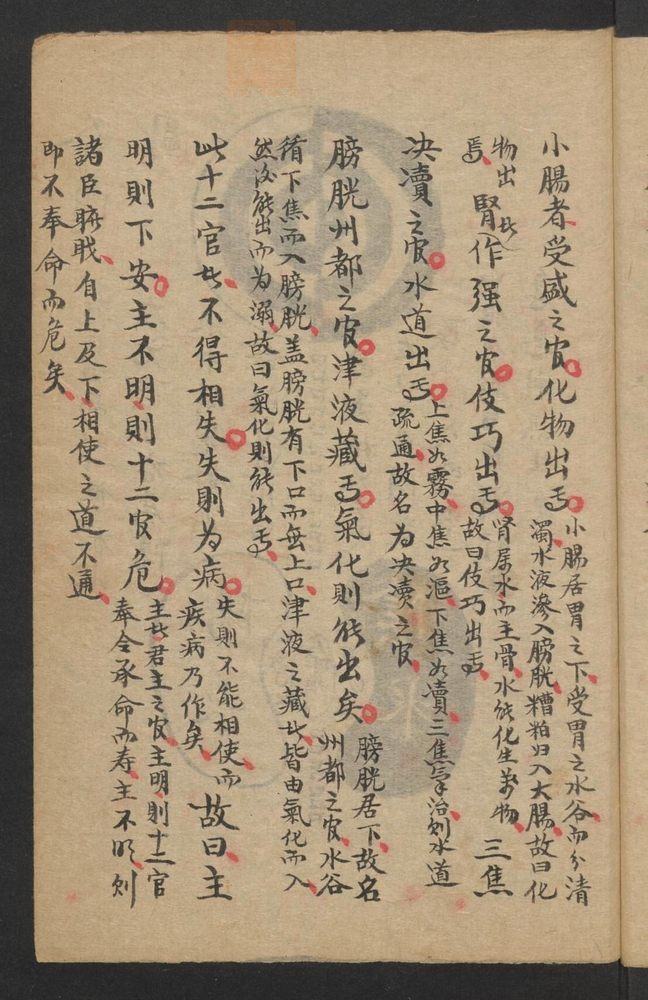 小腸者受盛之官化物出焉
小腸居胃之下受胃之水谷而分清
濁水液滲入膀胱糟粕归入大腸故曰化
物出
焉
腎者作强之官伎巧出焉
腎属水而主骨水能化生萬物
故曰伎巧出焉
三焦
決瀆之官水道出焉
上焦如霧中焦如漚下焦如瀆三焦氣治則水道
疏通故名为決瀆之官
膀胱州都之官津液藏焉氣化則能出矣
膀胱居下故名
州都之官水谷
循下焦而入膀胱盖膀胱有下口而無上口津液之藏者皆由氣化而入
然後能出而为溺故曰氣化則能出焉
此十二官者不得相失失則为病
失則不能相使而
疾病乃作矣
故曰主
明則下安主不明則十二官危
主者君主之官主明則十二官
奉令承命而寿主不明則
諸臣曠职自上及下相使之道不通
即不奉命而危矣